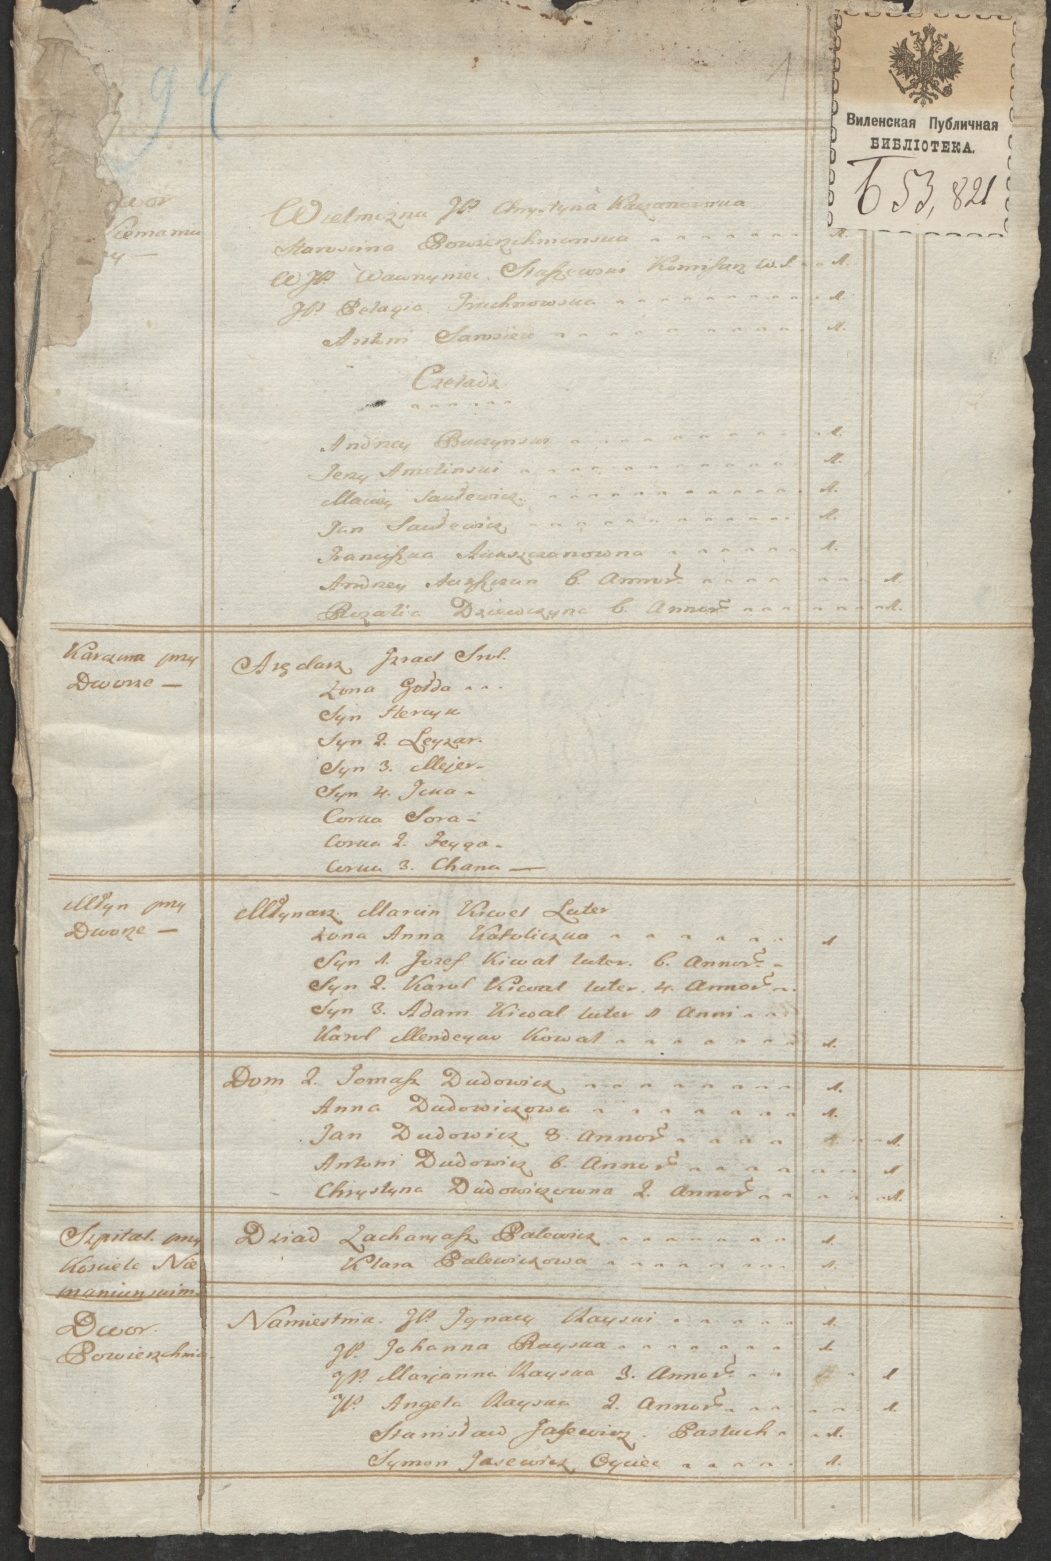 94
1
Виленская Публичная
БИБЛІОТЕКА.
Б 53, 821
Wielmozna JP. Chrystyna Kaszanowna
Staroscina 1.
WJP. Wawrzyniec Staszewski Komisarz 1.
JP. Pelagia Juchnowska 1.
Antoni 1.
Czeladz
Andrzey Buczynski 1.
Jerzy Amolinski 1.
Maciey Sawlewicz 1.
Jan Sawlewicz 1.
Franciszka 1.
Andrzey 6. Annor 1.
Rozalia Dziewczyna 6. Annor 1.
Karczma przy
Dworze —
Arędarz Jzrael Srol.
Zona Gołda
Syn Hercyk
Syn 2. Leyzar.
Syn 3. Mejer
Syn 4. Jcka
Corka Sora
Corka 2. Feyga
Corka 3. Chana —
Młyn przy
Dworze —
Młynarz. Marcin Kiwel Luter
Zona Anna Katoliczka 1
Syn 1. Jozef Kiwal luter. 6. Annor
Syn 2. Karol Kiwal luter. 4. Annor
Syn 3. Adam Kiwal luter 1 Anni
Karol Mendeyko Kowal 1.
Dom 2. Tomasz Dudowicz 1.
Anna Dudowiczowa 1.
Jan Dudowicz 8. Annor 1.
Antoni Dudowicz 6. Annor 1
Chrystyna Dudowiczowna 2. Annor 1.
Szpital przy
Kosciele Nie
maniunskim
Dziad Zacharyasz Palewicz 1.
Klara Palewiczowa 1.
Dwor.
Powierzchnia.
Namiestnik. JP. Jgnacy Rayski 1.
JP. Johanna Rayska 1
JP. Marjanna Rayska 3. Annor 1
JP. Angela Rayska 2. Annor 1.
Stanisław Jasewicz. Pastuch 1.
Symon Jasewicz Oyciec 1.